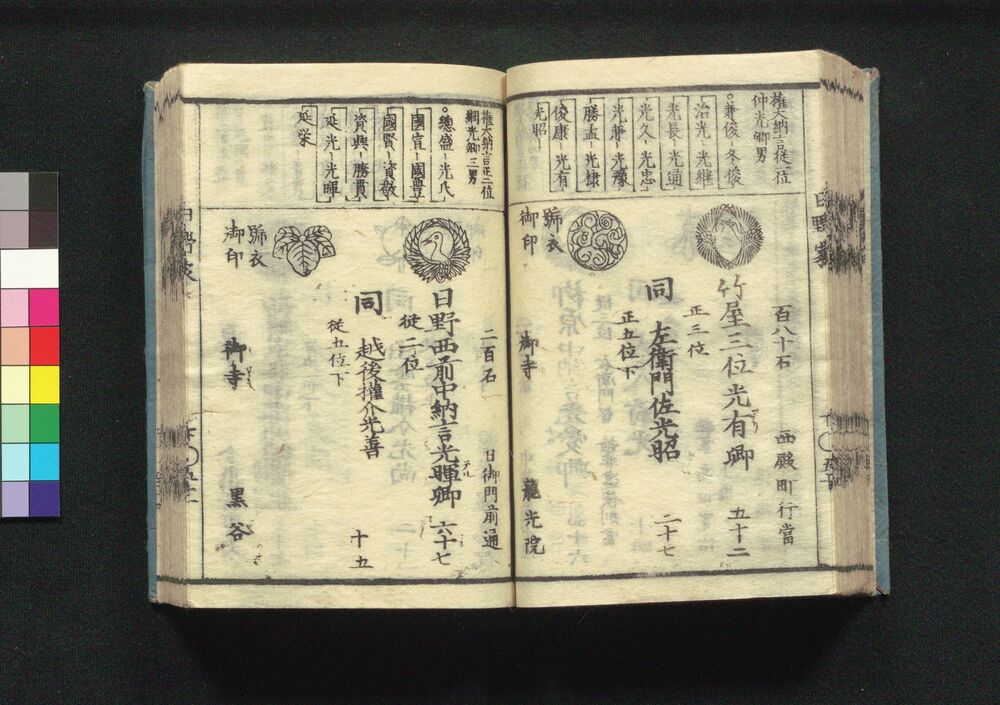 日野家
權大納言從一位
仲光卿男
兼俊 冬俊
治光 光継
光長 光遠
光久 光忠
光兼 光豫
勝孟 光棣
俊康 光有
光昭
百八十石
西殿町行當
竹屋三位光有卿
五十二
正三位
同
左衛門佐光昭
二十七
正五位下
號衣
御印
御寺
龍光院
權大納言正二位
總盛 光氏
國宣 國豊
國賢 資敬
資興 勝貫
延光 光暉
延栄
二百石
日御門前通
日野西前中納言光暉卿
テル
六十七
從二位
同
越後權介光善
十五
從五位下
號衣
御印
御寺
黒谷